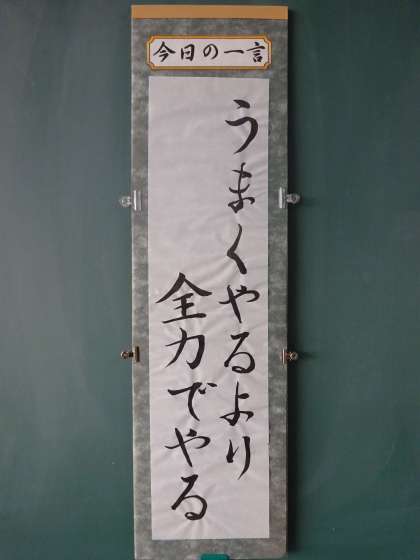 今日の一言
うまくやるより
全力でやる